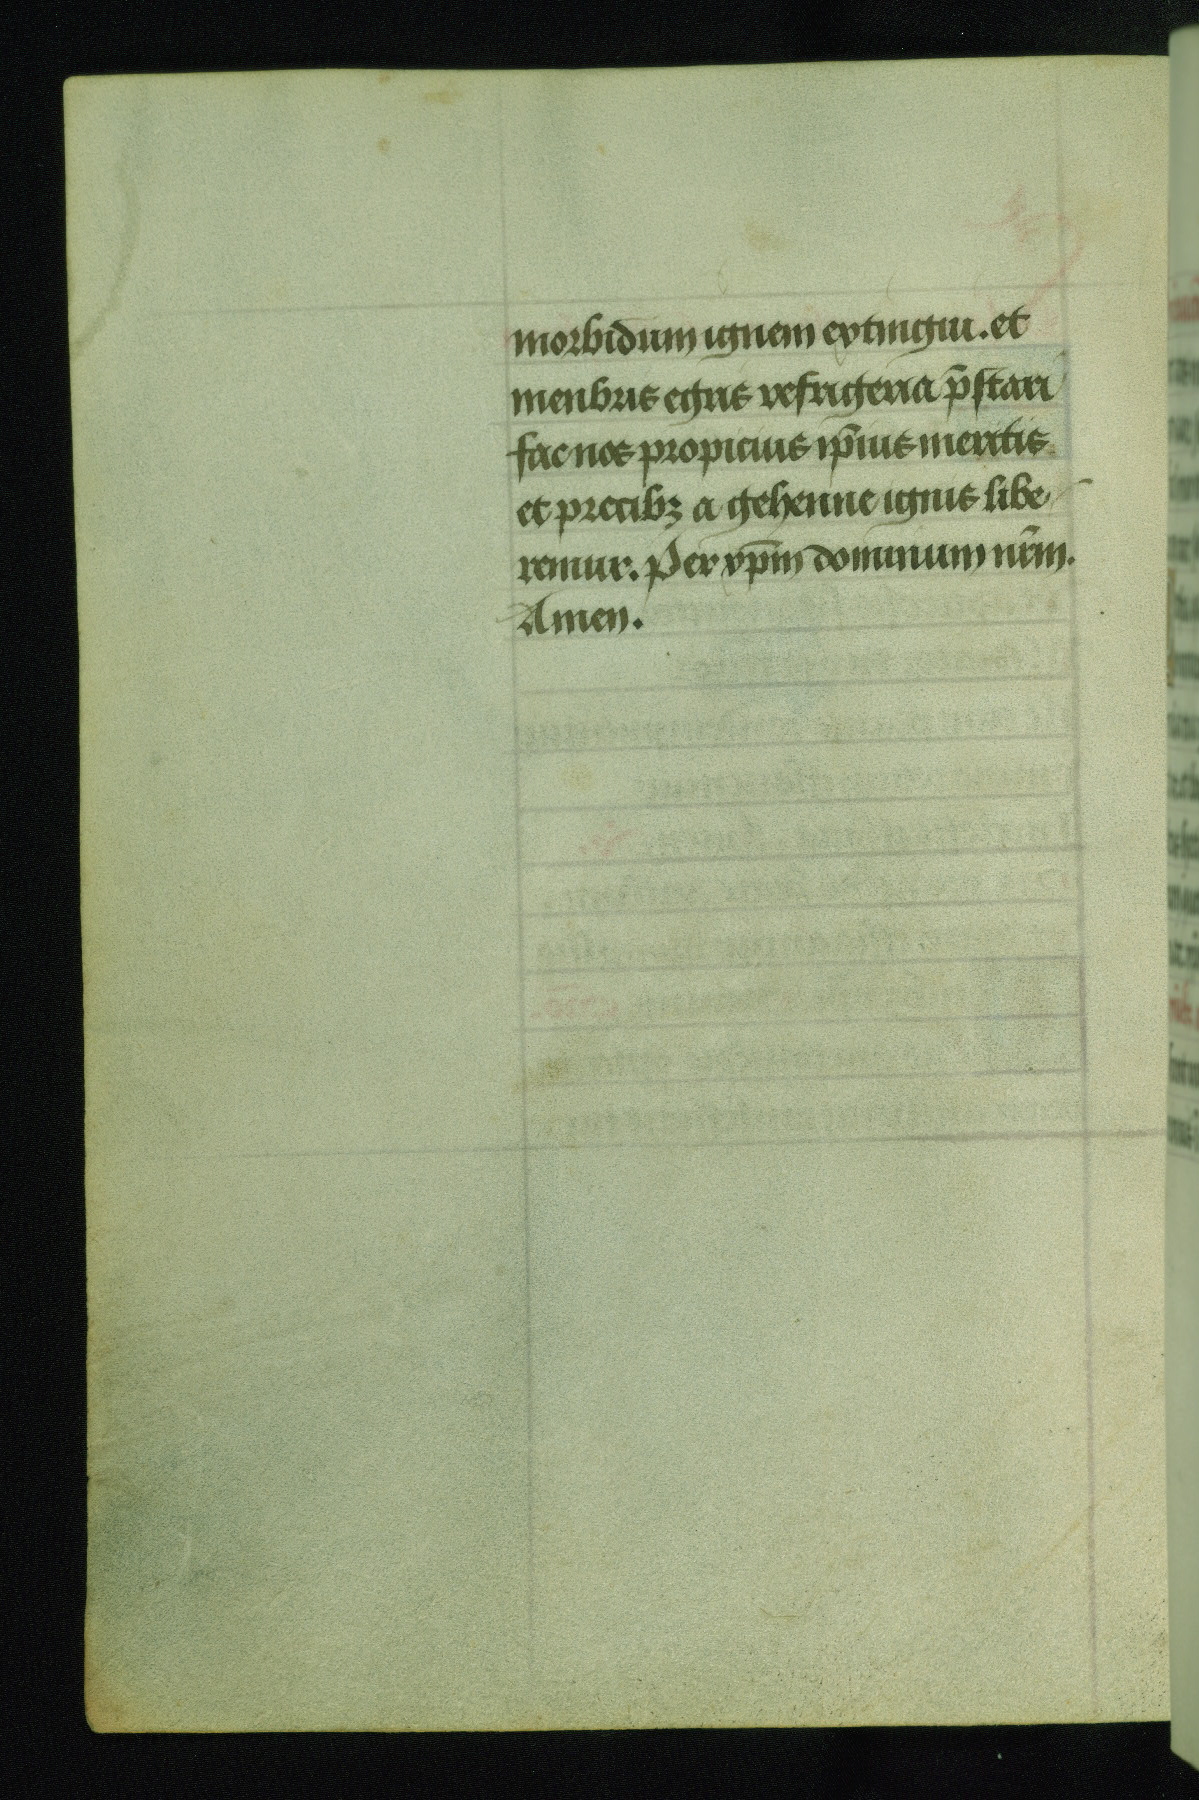 morbidum ignem extingui. et
menbris egris refrigeria p̄stari
fac nos propicius ip̄ius meritis
et precibꝫ a gehenne ignis libe
remur. Per xp̄m dominum nr̄m.
Amen.